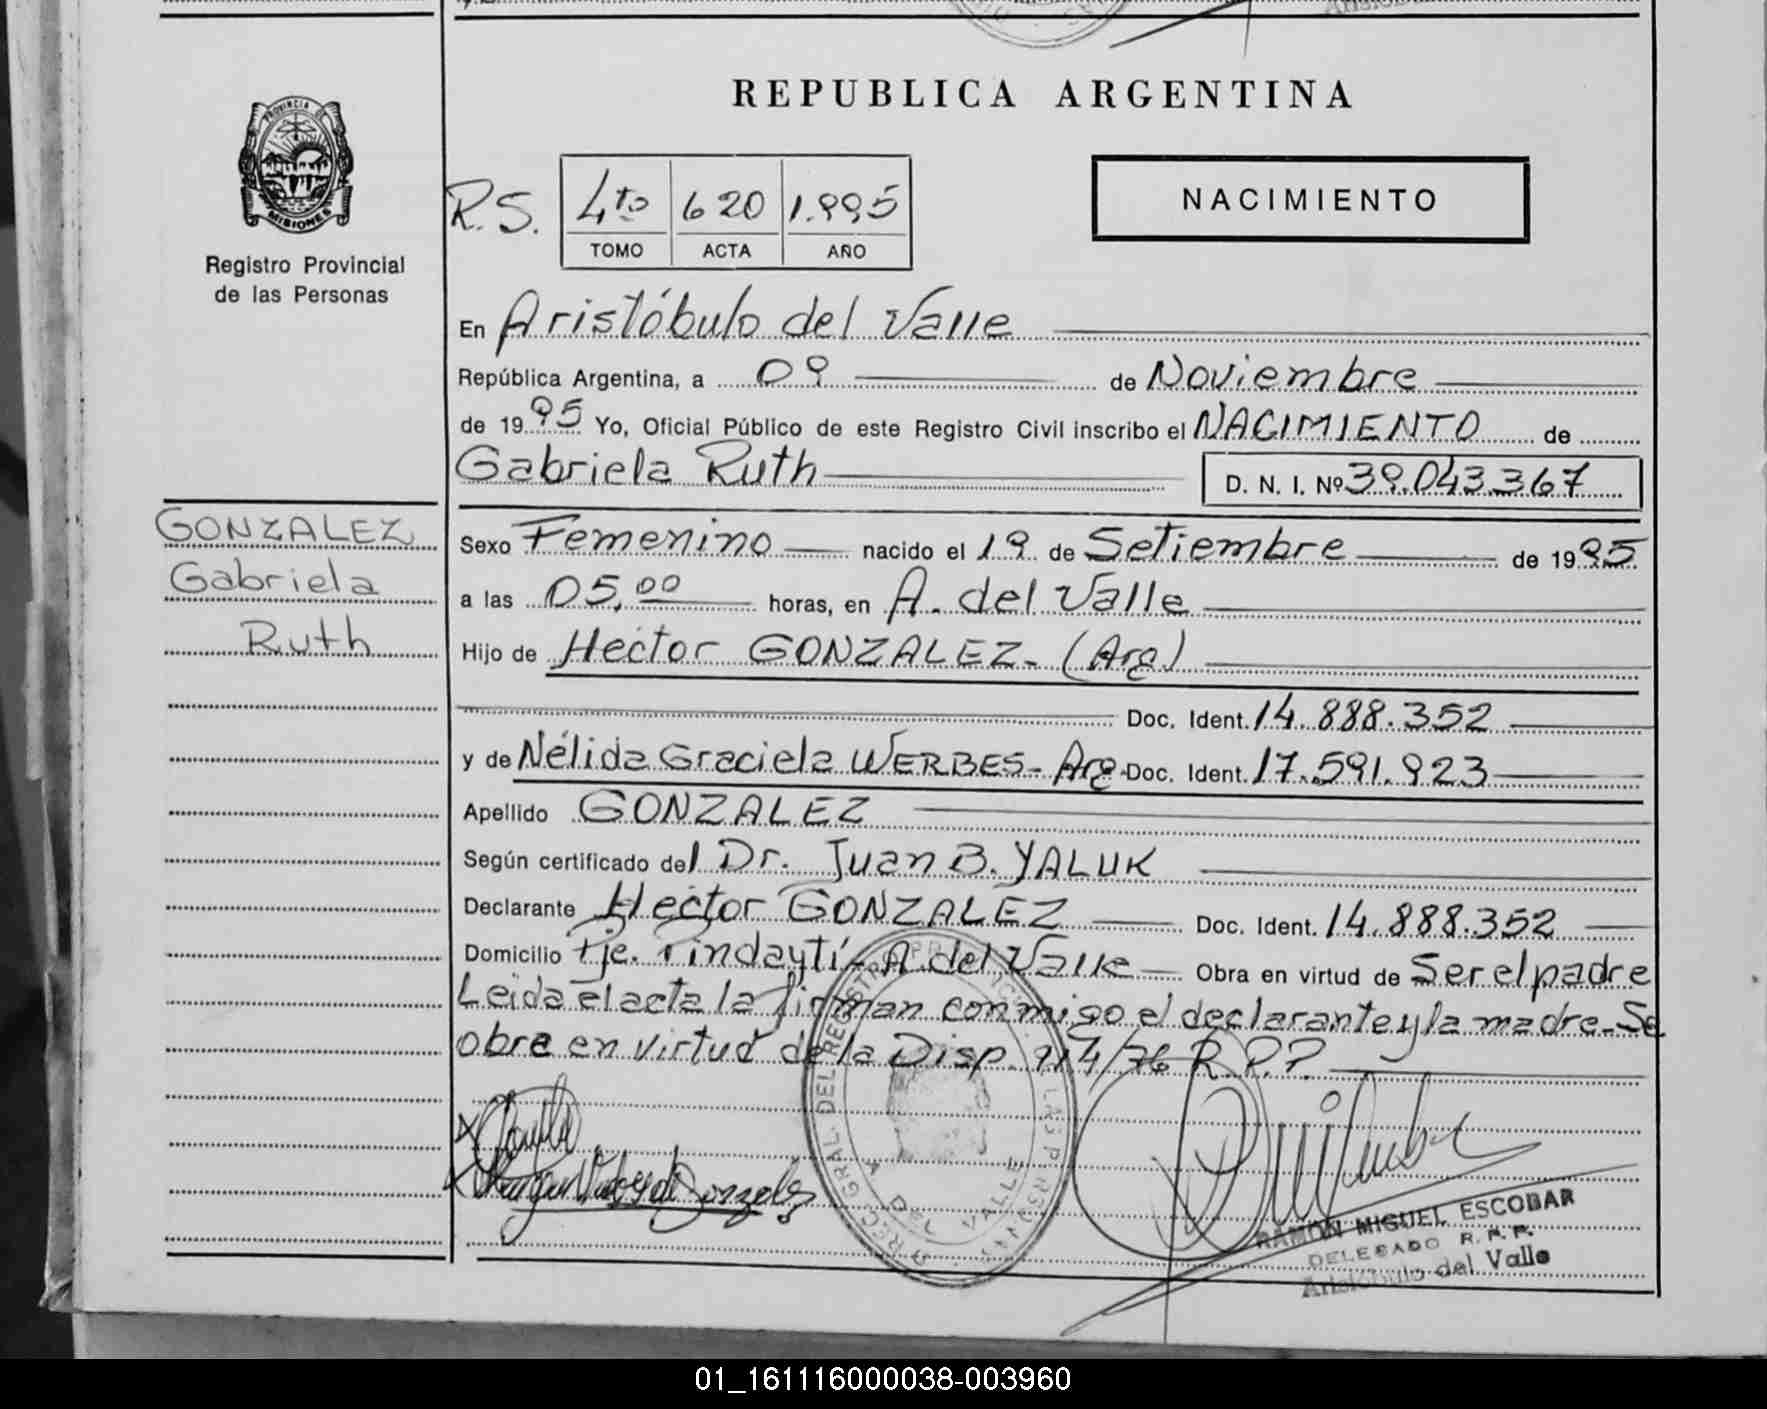 REPUBLICA ARGENTINA
PROVINCIA DE
MISIONES
Registro Provincial
de las Personas
NACIMIENTO
R.S.
4to 620 1.995
TOMO ACTA AÑO
En Aristóbulo del Valle
República Argentina, a 09 de Noviembre
de 1995 Yo, Oficial Público de este Registro Civil inscribo el NACIMIENTO de
Gabriela Ruth D. N. I. Nº 39.043.367
GONZALEZ
Gabriela
Ruth
Sexo Femenino nacido el 19 de Setiembre de 1995
a las 05,00 horas, en A. del Valle
Hijo de Héctor GONZALEZ- (Arg)
Doc. Ident. 14.888.352
y de Nélida Graciela WERBES- Arg- Doc. Ident. 17.591.923
Apellido GONZALEZ
Según certificado del Dr. Juan B. YALUK
Declarante Héctor GONZALEZ Doc. Ident. 14.888.352
Domicilio Pje. Pindaytí- A. del Valle Obra en virtud de Ser el padre
Leída el acta la firman conmigo el declarante y la madre- Se
obra en virtud de la Disp. 914/76 R.P.P.
RAMON MIGUEL ESCOBAR
DELEGADO R. P. P.
Aristóbulo del Valle
01_161116000038-003960